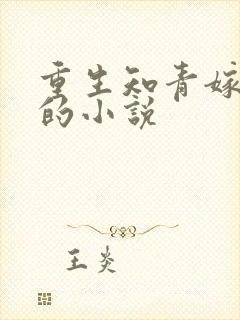 重生知青嫁
的小说
王炎